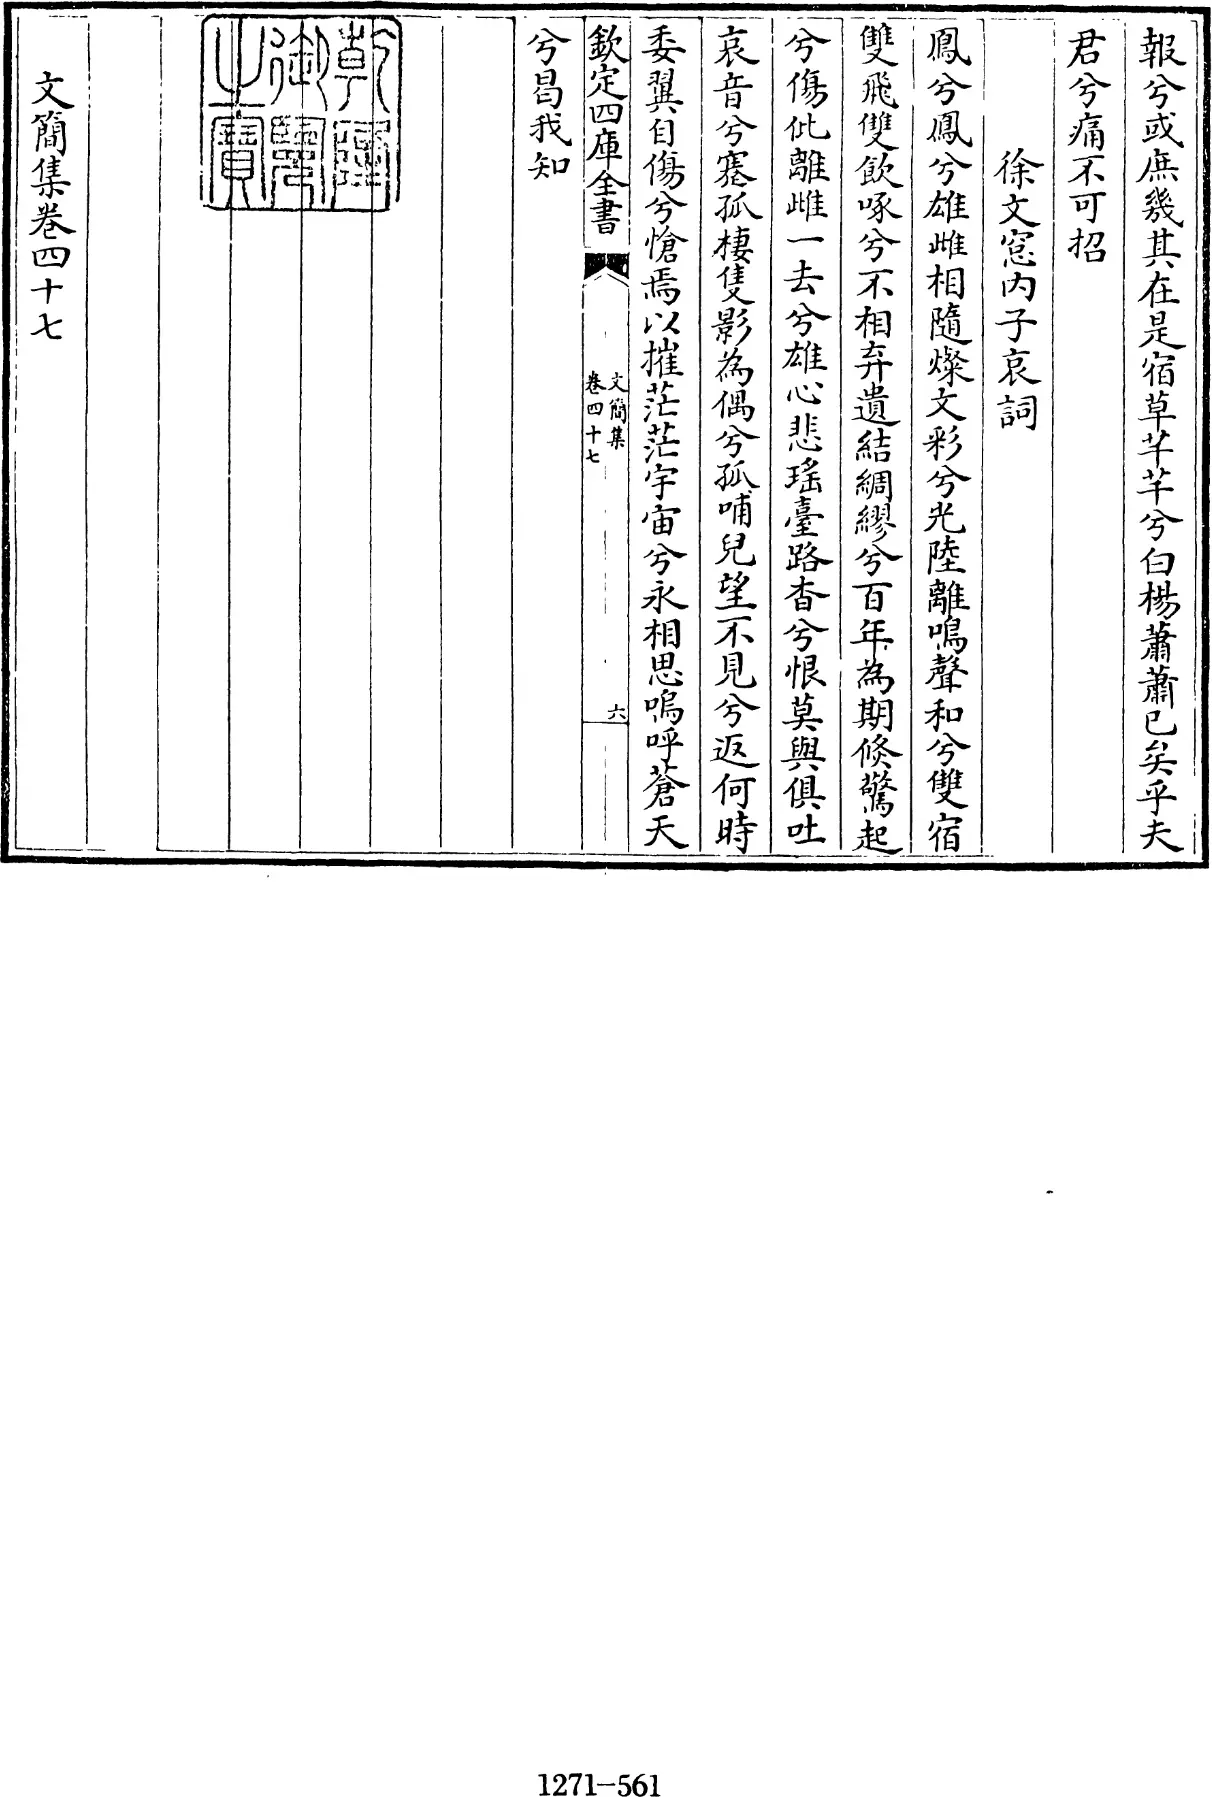 報兮或庶幾其在是宿草芊芊兮白楊蕭蕭已矣乎夫
君兮痛不可招
徐文窓内子哀詞
鳳兮鳳兮雄雌相隨燦文彩兮光陸離鳴聲和兮雙宿
雙飛雙飲啄兮不相弃遺結綢繆兮百年為期倐驚起
兮傷此離雌一去兮雄心悲瑶臺路杳兮恨莫與俱吐
哀音兮寋孤棲隻影為偶兮孤哺兒望不見兮返何時
委翼自傷兮愴焉以摧茫茫宇宙兮永相思嗚呼蒼天
欽定四庫全書
文簡集
卷四十七
六
兮曷我知
乾隆
御覽
之寶
文簡集卷四十七
1271-561